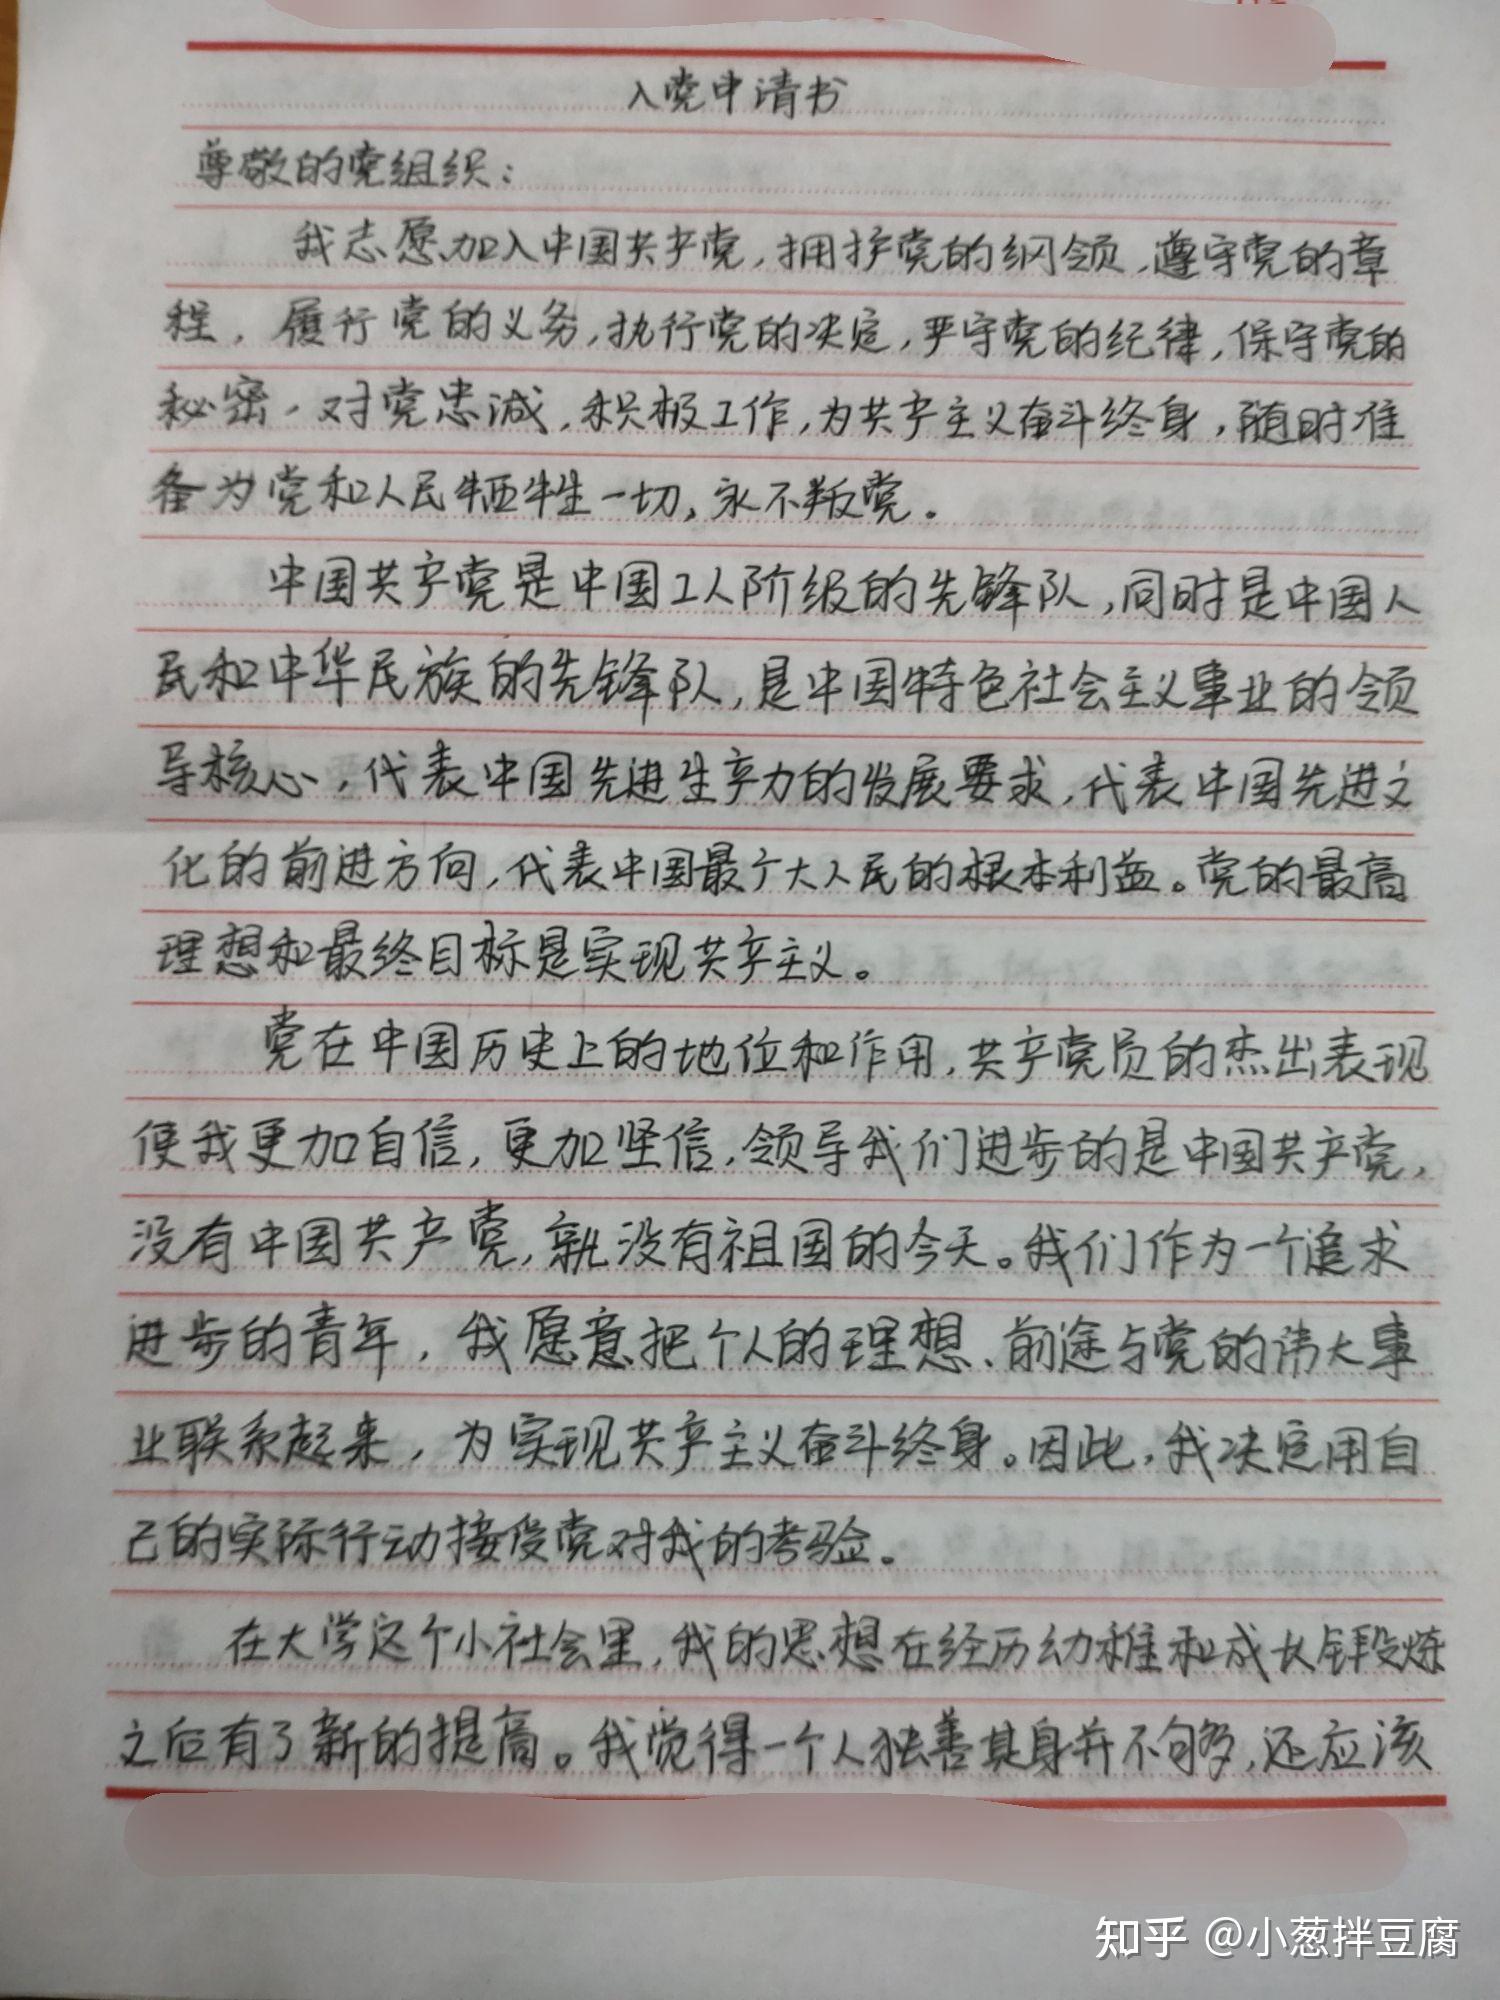 入党申请书
尊敬的党组织：
我志愿加入中国共产党，拥护党的纲领，遵守党的章
程，履行党的义务，执行党的决定，严守党的纪律，保守党的
秘密，对党忠诚，积极工作，为共产主义奋斗终身，随时准
备为党和人民牺牲一切，永不叛党。
中国共产党是中国工人阶级的先锋队，同时是中国人
民和中华民族的先锋队，是中国特色社会主义事业的领
导核心，代表中国先进生产力的发展要求，代表中国先进文
化的前进方向，代表中国最广大人民的根本利益。党的最高
理想和最终目标是实现共产主义。
党在中国历史上的地位和作用，共产党员的杰出表现
使我更加自信，更加坚信，领导我们进步的是中国共产党，
没有中国共产党，就没有祖国的今天。我们作为一个追求
进步的青年，我愿意把个人的理想、前途与党的伟大事
业联系起来，为实现共产主义奋斗终身。因此，我决定用自
己的实际行动接受党对我的考验。
在大学这个小社会里，我的思想在经历幼稚和成长锻炼
之后有了新的提高。我觉得一个人独善其身并不够，还应该
知乎 @小葱拌豆腐